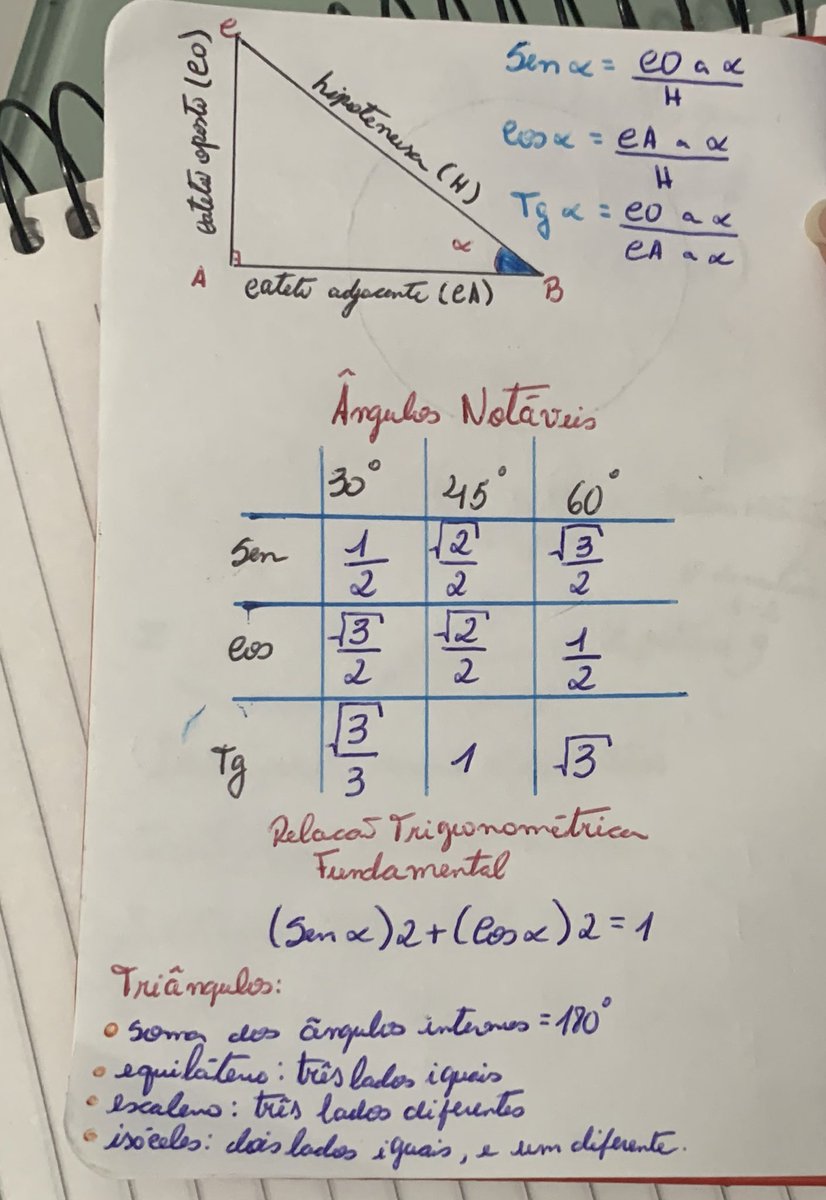 C
cateto oposto (CO)
hipotenusa (H)
α
A
cateto adjacente (CA)
B
Sen α = CO a α
H
Cos α = CA a α
H
Tg α = CO a α
CA a α
Ângulos Notáveis
30° 45° 60°
Sen 1/2 √2/2 √3/2
Cos √3/2 √2/2 1/2
Tg √3/3 1 √3
Relacaõ Trigonométrica
Fundamental
(Sen α)2+(Cos α)2=1
Triângulos:
• soma dos ângulos internos = 180°
• equilátero: três lados iguais
• escaleno: três lados diferentes
• isóceles: dois lados iguais, e um diferente.